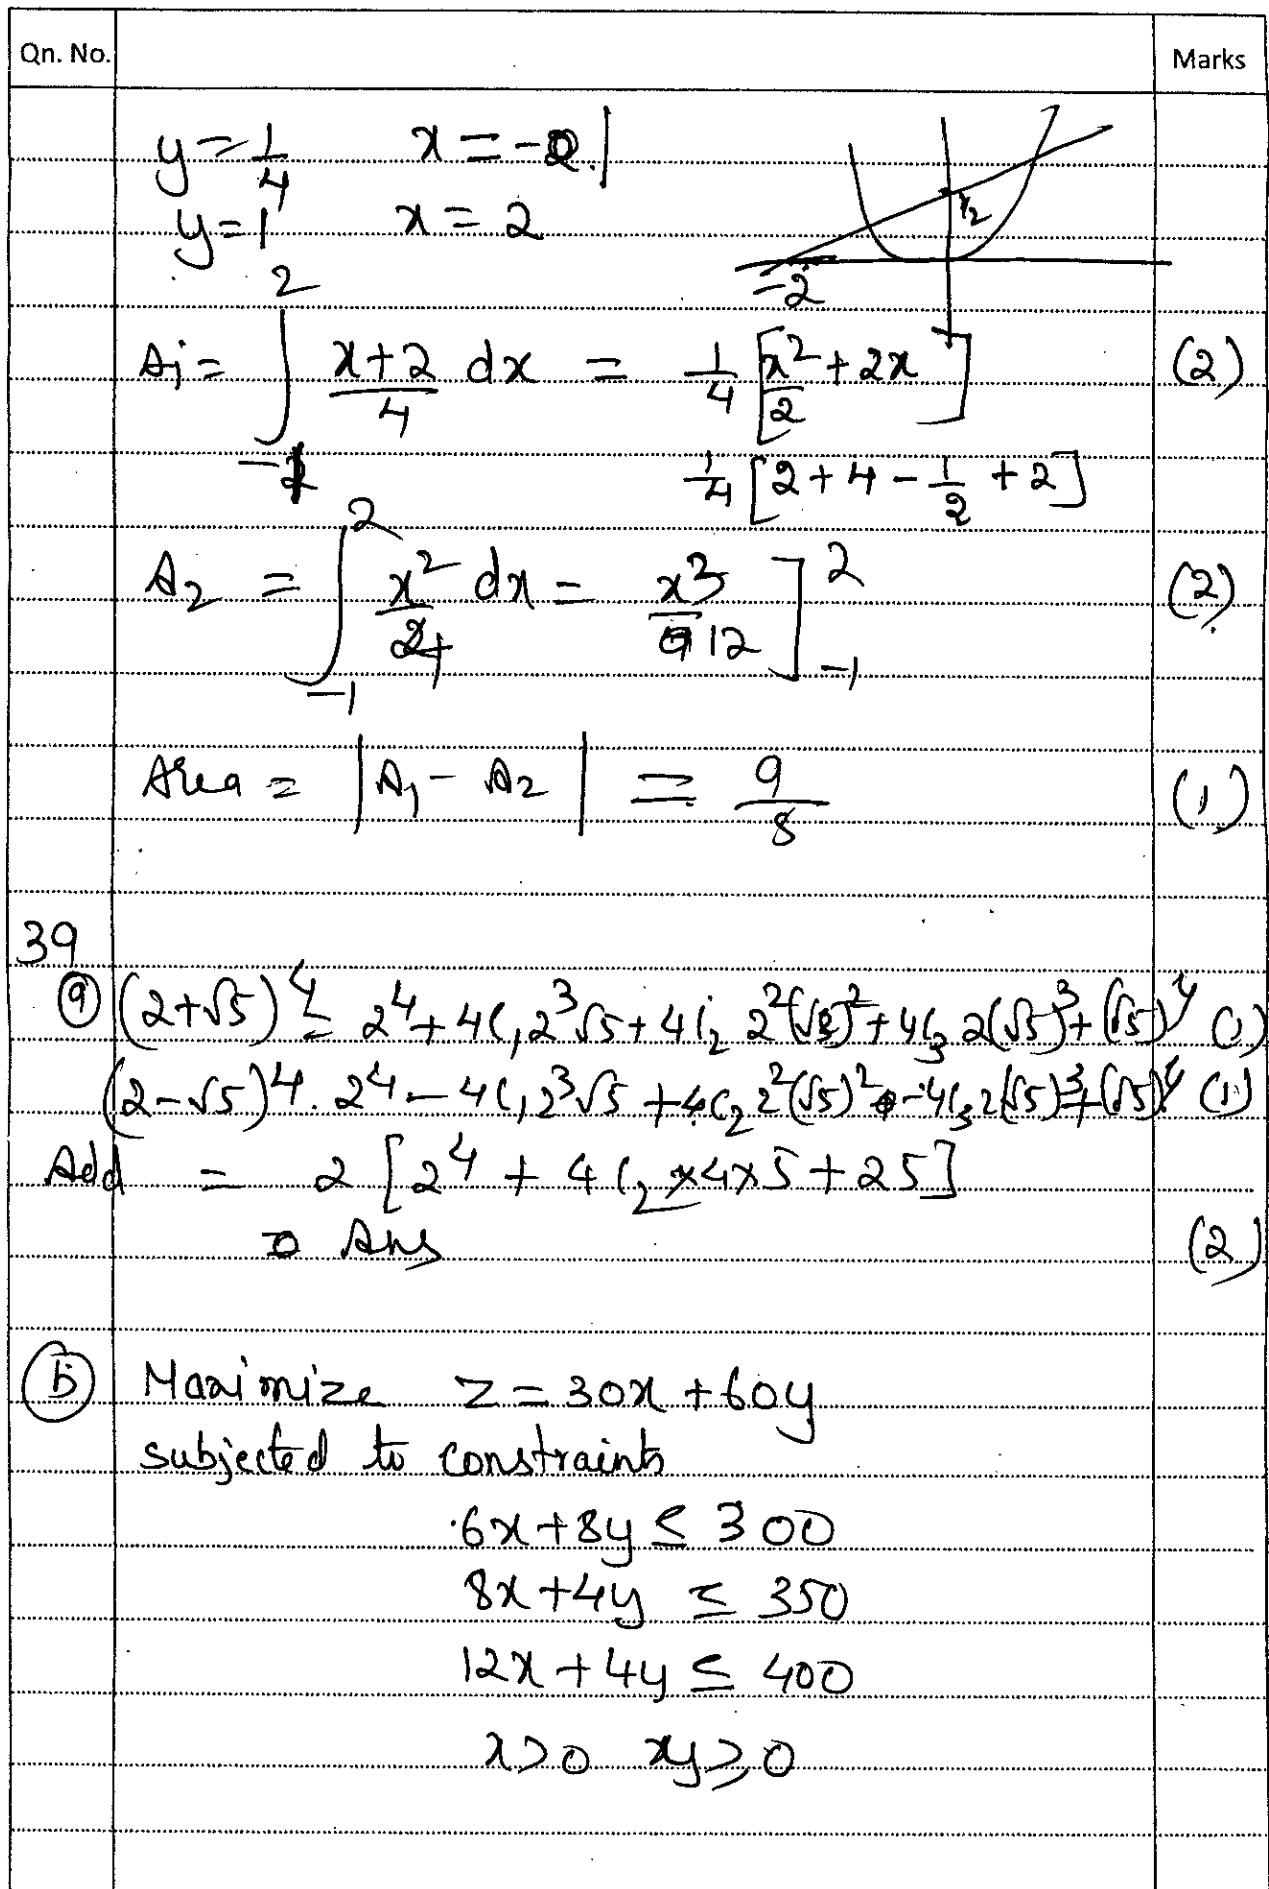 Qn. No. Marks
y = 1/4 x = -1
y = 1 x = 2
1/2
-2
A₁ = ∫₋₁² (x+2)/4 dx = 1/4 [x²/2 + 2x] (2)
1/4 [2 + 4 - 1/2 + 2]
A₂ = ∫₋₁² x²/4 dx = x³/12 ]₋₁² (2)
Area = |A₁ - A₂| = 9/8 (1)
39
(a) (2+√5)⁴ = 2⁴ + 4C₁ 2³√5 + 4C₂ 2²(√5)² + 4C₃ 2(√5)³ + (√5)⁴ (1)
(2-√5)⁴. 2⁴ - 4C₁ 2³√5 + 4C₂ 2²(√5)² - 4C₃ 2(√5)³ + (√5)⁴ (1)
Add = 2 [2⁴ + 4C₂ × 4 × 5 + 25]
Ans (2)
(b) Maximize Z = 30x + 60y
subjected to constraints
6x + 8y ≤ 300
8x + 4y ≤ 350
12x + 4y ≤ 400
x > 0 y ≥ 0